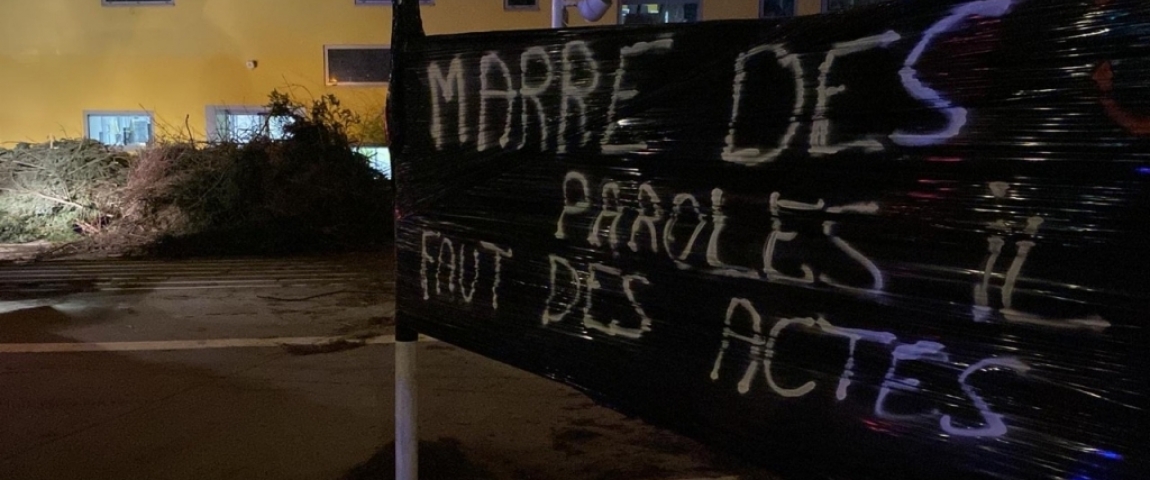 MARRE DES
PAROLES IL
FAUT DES
ACTES